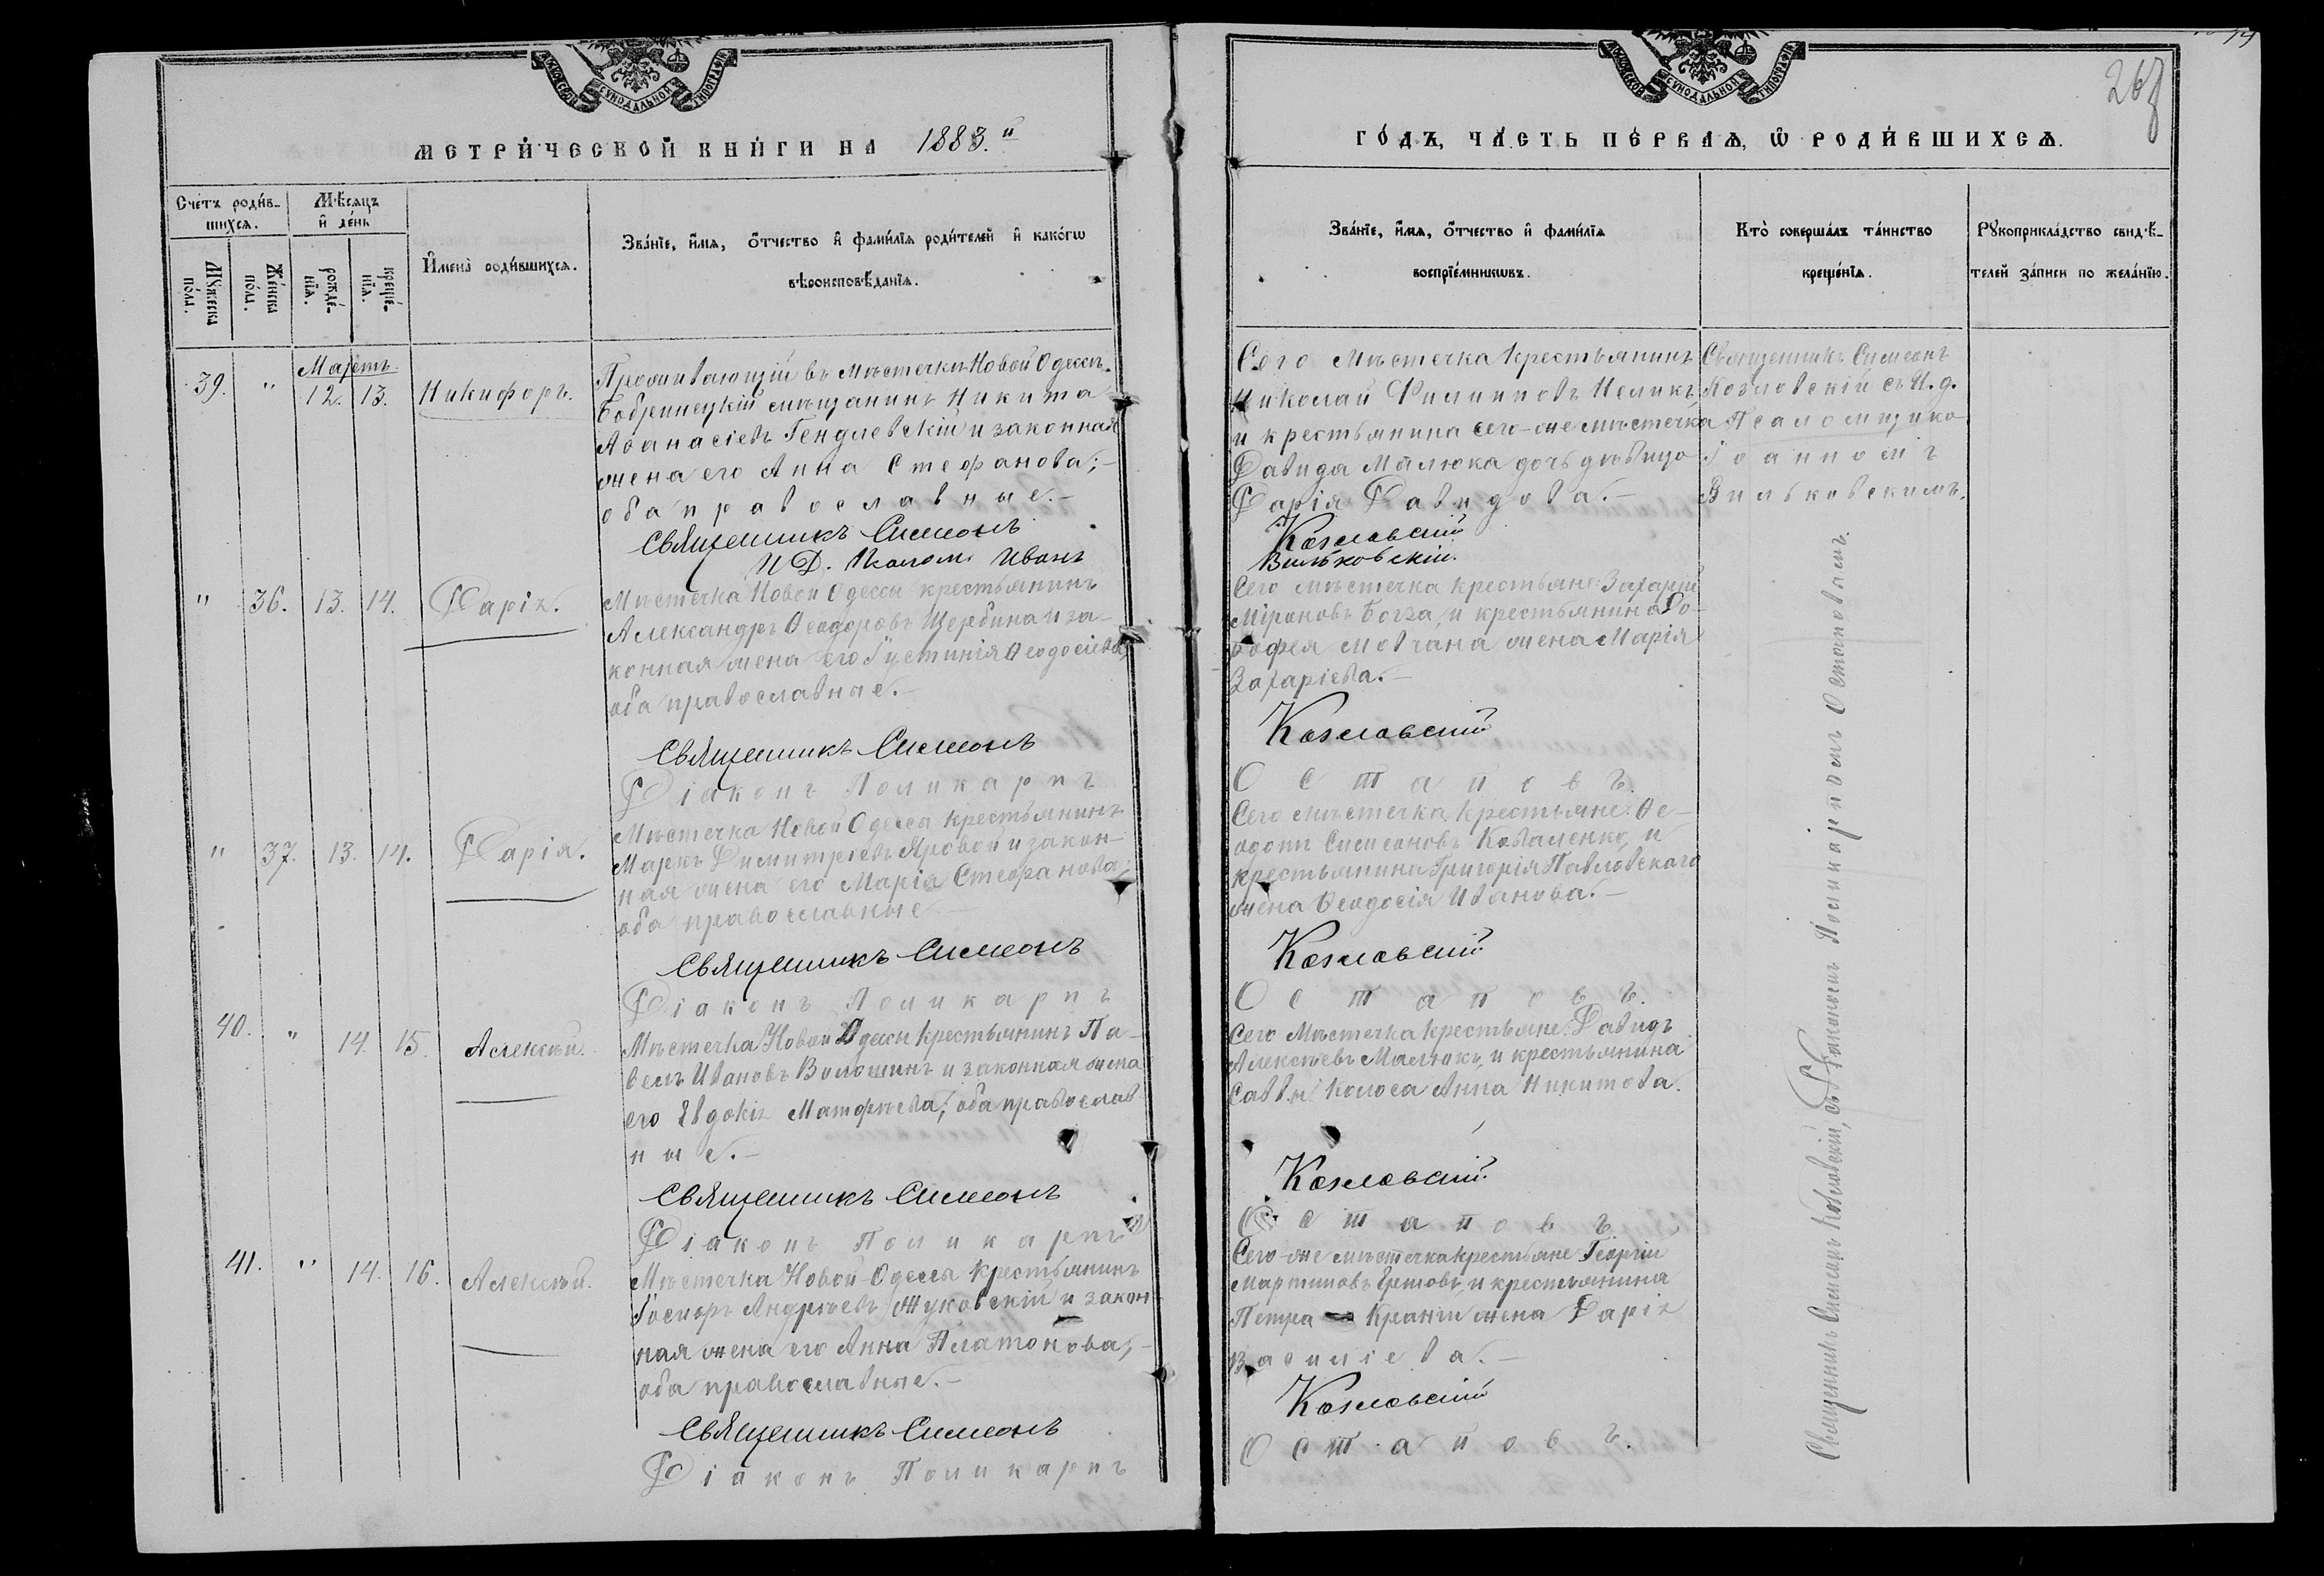 МОСКОВСКОЙ СУНОДАЛЬНОЙ ТИПОГРАФІИ
МЕТРИ́ЧЕСКОЙ КНИ́ГИ НА 1883.й
Счетъ роди́в-
шихсѧ.
Мѣ́сѧцъ
и҆ де́нь
Мꙋ́жеска
по́лꙋ.
Же́нска
по́лꙋ.
рожде́-
нїѧ.
креще́-
нїѧ.
И҆мена̀ роди́вшихсѧ.
Зва́нїе, и҆́мѧ, ѻ҆́тчество и҆ фами́лїѧ роди́телей и҆ како́гѡ
вѣроисповѣ́данїѧ.
Мартъ.
39. " 12. 13. Никифоръ.
Проживающій въ мѣстечкѣ Новой Одессѣ.
Бобринецкій мѣщанинъ Никита
Аѳанасіевъ Гендлевскій и законная
жена его Анна Стефанова;-
оба православные.-
Священникъ Симеонъ
И Д. Псалом. Иванъ
" 36. 13. 14. Дарія.
Мѣстечка Новой Одессы крестьянинъ
Александръ Ѳеодоровъ Щербина и за-
конная жена его Іустинія Ѳеодосіева,
оба православные.-
Священникъ Симеонъ
Діаконъ Поликарпъ
" 37. 13. 14. Дарія.
Мѣстечка Новой Одессы крестьянинъ
Маркъ Димитріевъ Яровой и закон-
ная жена его Марія Стефанова;
оба православные.-
Священникъ Симеонъ
Діаконъ Поликарпъ
40. " 14. 15. Алексѣй.
Мѣстечка Новой Одессы крестьянинъ Па-
велъ Ивановъ Волошинъ и законная жена
его Евдокія Матфѣева; оба православ
ные.-
Священникъ Симеонъ
Діаконъ Поликарпъ
41. " 14. 16. Алексѣй.
Мѣстечка Новой-Одессы крестьянинъ
Іосифъ Андреевъ Жуковскій и закон-
ная жена его Анна Платонова;-
оба православные.-
Священникъ Симеонъ
Діаконъ Поликарпъ
МОСКОВСКОЙ СУНОДАЛЬНОЙ ТИПОГРАФІИ
267
ГО́ДЪ, ЧА́СТЬ ПЕ́РВАѦ, Ѡ҆ РОДИ́ВШИХСѦ.
Зва́нїе, и҆́мѧ, ѻ҆́тчество и҆ фами́лїѧ
воспрїе́мникѡвъ.
Кто̀ соверша́лъ та́инство
креще́нїѧ.
Рꙋкоприкла́дство свидѣ́-
телей за́писи по жела́нїю.
Сего мѣстечка крестьянинъ
Николай Филипповъ Меликъ,
и крестьянина сего-же мѣстечка
Давида Малюка дочь дѣвица
Дарія Давидова.-
Козловскій
Вильковскій.
Священникъ Симеонъ
Козловскій съ И.д.
Псаломщико-
Іоанномъ
Вильковскимъ.
Сего мѣстечка крестьяне: Захарій
Міроновъ Богза, и крестьянина До-
рофея Мовчана жена Марія
Захаріева.-
Козловскій
Остаповъ.
Сего мѣстечка крестьяне: Ѳе-
одотъ Симеоновъ Коваленко, и
крестьянина Григорія Павловскаго
жена Ѳеодосія Иванова.-
Козловскій
Остаповъ.
Сего мѣстечка крестьяне: Давидъ
Алексѣевъ Малюкъ, и крестьянина
Саввы Колоса Анна Никитова.
Козловскій
Остаповъ.
Сего-же мѣстечка крестьяне Георгій
Мартиновъ и крестьянина
Петра жена Дарія
Василіева.-
Козловскій
Остаповъ.
Священникъ Симеонъ Козловскій, съ Діакономъ Поликарповъ Остаповымъ.